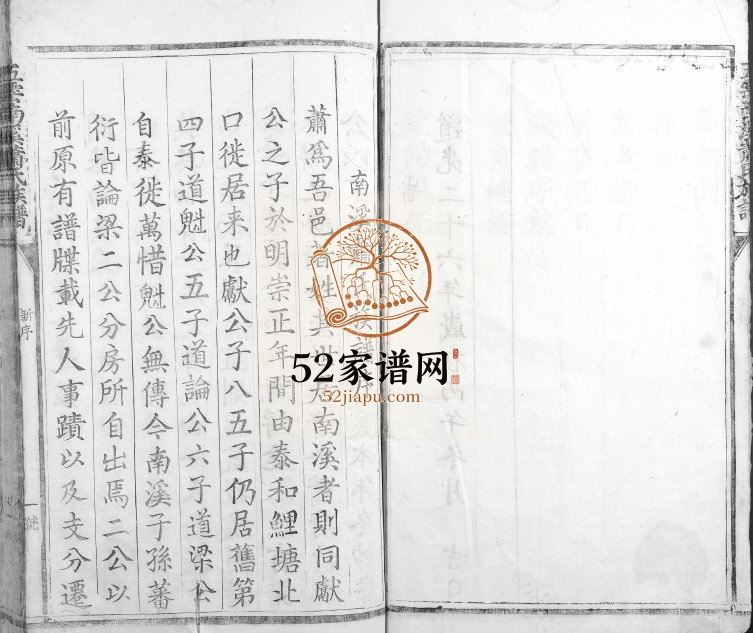 南溪蕭氏族譜序
蕭為吾邑著姓其居南溪者則同獻
公之子於明崇正年間由泰和鯉塘北
口徙居来也獻公子八五子仍居舊第
四子道魁公五子道論公六子道梁公
自泰徙萬惜魁公無傳今南溪子孫蕃
衍皆論梁二公分房所自出焉二公以
前原有譜牒載先人事蹟以及支分遷
五雲南溪蕭氏族譜
新序
一號
52家谱网
52jiapu.com